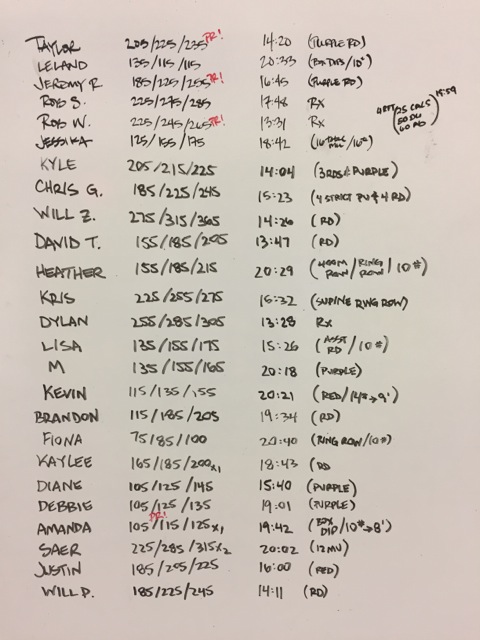 TAYLOR 205/225/235 PR! 14:20 (PURPLE RD)
LELAND 135/115/115 20:33 (BOX DIPS/10#)
JEREMY R 185/225/255 PR! 16:45 (PURPLE RD)
ROB S. 225/275/285 17:48 RX
ROB W. 225/245/265 PR! 13:31 RX
JESSIKA 125/155/175 18:42
25 CALS 15:59
50 DU
KYLE 205/215/225 14:04 (3RDS PURPLE)
CHRIS G. 185/225/245 15:23 (4 STRICT PU & 4 RD)
WILL Z. 275/315/365 14:26 (RD)
DAVID T. 155/185/205 13:47 (RD)
HEATHER 155/185/215 20:29 (400M ROW/RING ROW/10#)
KRIS 225/255/275 15:32 (SUPINE RING ROW)
DYLAN 255/285/305 13:28 RX
LISA 135/155/175 15:26 (ASST RD/10#)
M 135/155/165 20:18 (PURPLE)
KEVIN 115/135/155 20:21 (RED/14#→9')
BRANDON 115/185/205 19:34 (RD)
FIONA 75/85/100 20:40 (RING ROW/10#)
KAYLEE 165/185/200x1 18:43 (RD
DIANE 105/125/145 15:40 (PURPLE)
DEBBIE 105/125/135 19:01 (PURPLE)
AMANDA 105/115/125x1 PR! 19:42 (BOX DIP/10#→8')
SAER 225/285/315x2 20:02 (12MU)
JUSTIN 185/205/225 16:00 (RED)
WILL P. 185/225/245 14:11 (RD)